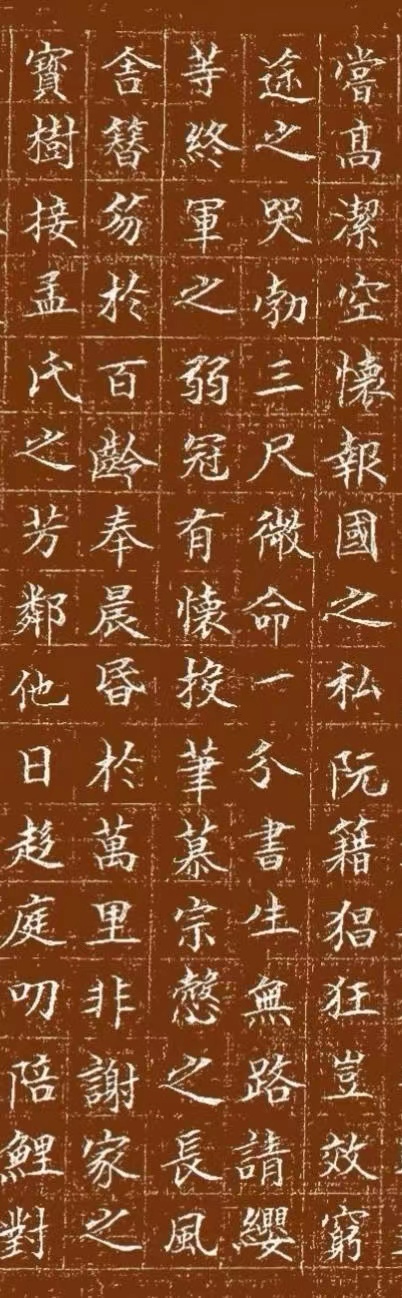 嘗高潔空懷報國之私阮籍猖狂豈效窮
途之哭勃三尺微命一介書生無路請纓
等終軍之弱冠有懷投筆慕宗愨之長風
舍簪笏於百齡奉晨昏於萬里非謝家之
寶樹接孟氏之芳鄰他日趍庭叨陪鯉對